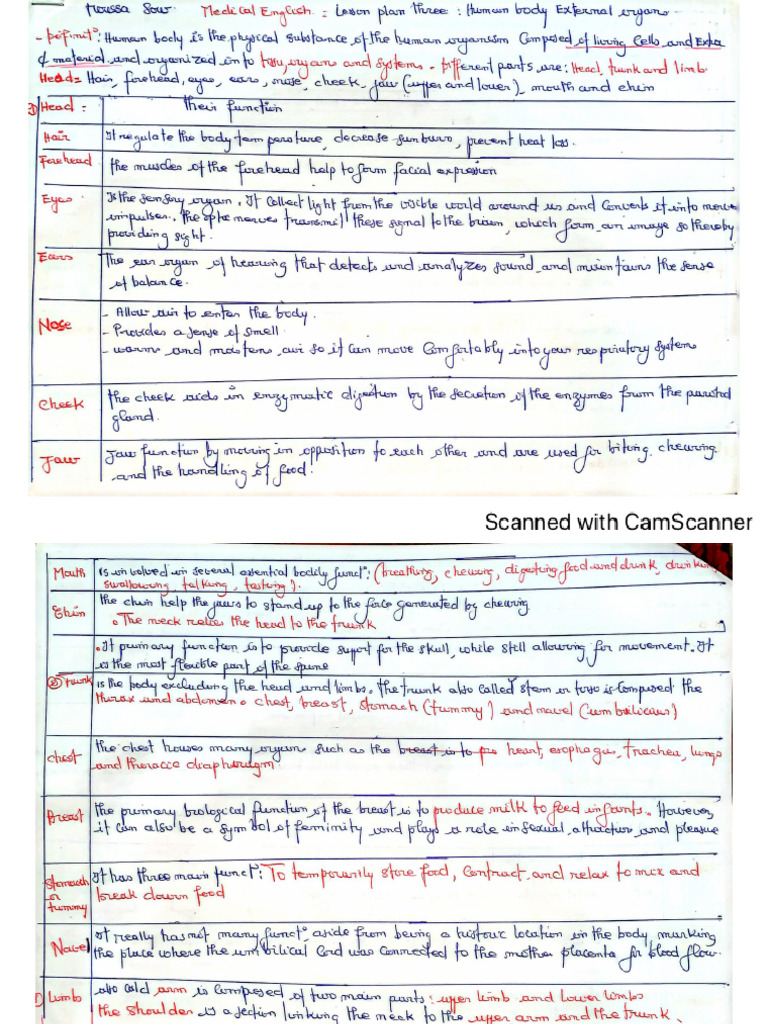 Moussa Sow Medical English : Lesson plan three : Human body External organs
- Definit°: Human body is the physical substance of the human organism Composed of living Cells and Extra
material and organized into tissu, organs and systems. Different parts are: Head, trunk and limb.
Head= Hair, forehead, eyes, ears, nose, cheek, jaw (upper and lower), mouth and chin
Head : Their function
Hair It regulate the body temperature, decrease sunburn, prevent heat loss.
Forehead the muscles of the forehead help to form facial expression
Eyes Is the sensory organ. It collect light from the visible world around us and converts it into nerve
impulses. the optic nerves transmit these signal to the brain, which form an image so thereby
providing sight.
Ears The ear organ of hearing that detects and analyzes sound and maintains the sense
of balance.
- Allow air to enter the body.
Nose - Provides a sense of smell.
- warm and moistens air so it can move comfortably into your respiratory system
Cheek the cheek aids in enzymatic digestion by the secretion of the enzymes from the parotid
gland.
Jaw Jaw function by moving in opposition to each other and are used for biting, chewing
and the handling of food.
Scanned with CamScanner
Mouth is involved in several essential bodily funct°: (breathing, chewing, digesting food and drunk, drinking
swallowing, talking, tasting).
Chin the chin help the jaws to stand up to the force generated by chewing
The neck relies the head to the trunk
It primary function is to provide support for the skull, while still allowing for movement. It
is the most flexible part of the spine
Trunk is the body excluding the head and limbs. the trunk also called stem or torso is composed the
thorax and abdomen. chest, breast, stomach (tummy) and navel (umbilicus)
chest the chest houses many organs such as the breast is to heart, esophagus, trachea, lungs
and thoracic diaphragm.
Breast the primary biological function of the breast is to produce milk to feed infants. However,
it can also be a symbol of feminity and plays a role in sexual attraction and pleasure
Stomach It has three main funct°: To temporarily store food, contract and relax to mix and
or break down food
tummy
Navel It really has not many funct° aside from being a historic location in the body marking
the place where the umbilical cord was connected to the mother placenta for blood flow.
Limbs also cold arm is composed of two main parts: upper limb and lower limbs
the shoulder is a section linking the neck to the upper arm and the trunk.